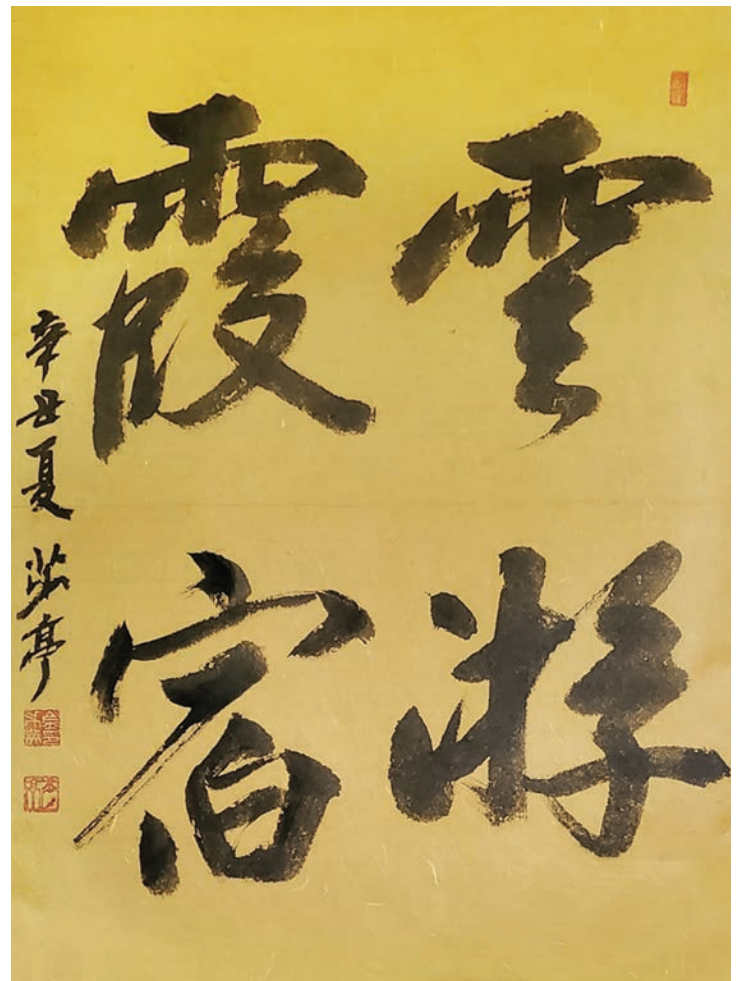 雲游
霞宿
辛丑夏 亭